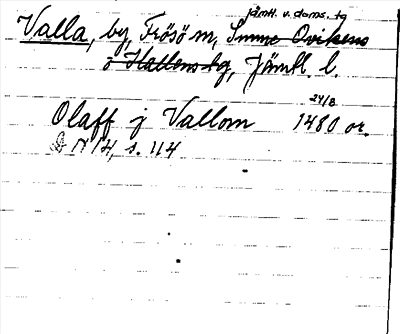 jämtl. v. doms. tg
Valla, by, Frösö m, Sunne Ovikens
o Hallens tg, Jämtl. l.
24/8
Olaff j Vallom 1480 or.
N 14, s. 114